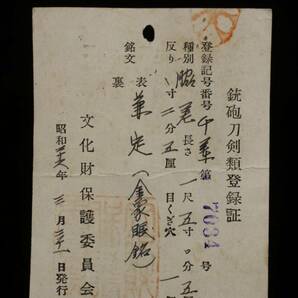 銃砲刀剣類登録証
登録記号番号 千葉 第 7034 号
種別 脇差 長さ 一尺五寸〇分五厘
反り 寸二分五厘 目くぎ穴 一
銘文 表 兼定(金象眼銘)
裏
昭和 年三月三十一日発行
文化財保護委員会